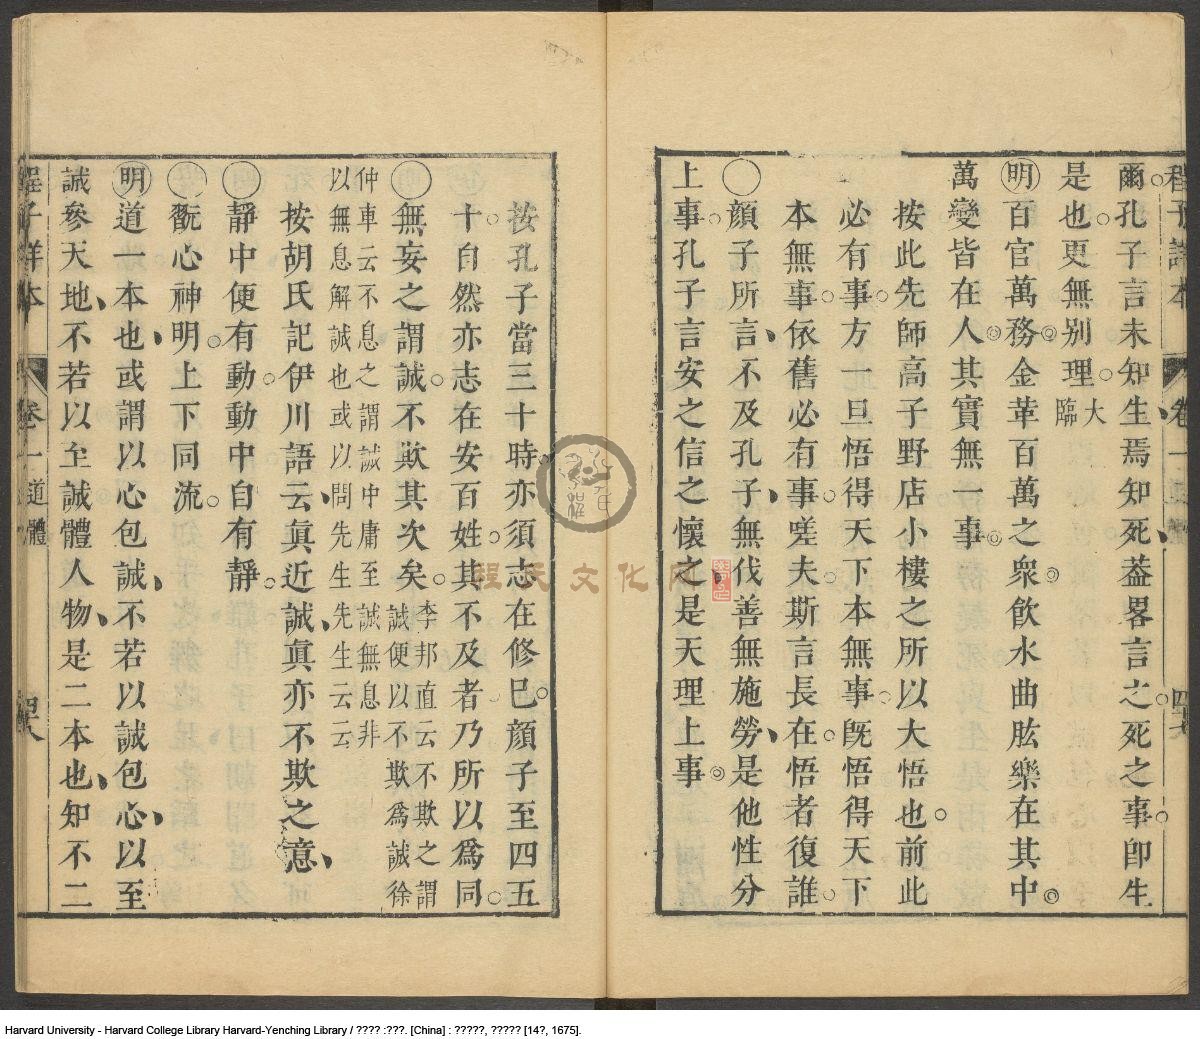 程子詳本 卷一 四六
爾孔子言未知生焉知死葢畧言之死之事卽生
是也更無別理大臨
明百官萬務金革百萬之衆飮水曲肱樂在其中
萬變皆在人其實無一事
按此先師高子野店小樓之所以大悟也前此
必有事方一旦悟得天下本無事旣悟得天下
本無事依舊必有事嗟夫斯言長在悟者復誰
顔子所言不及孔子無伐善無施勞是他性分
上事孔子言安之信之懷之是天理上事
按孔子當三十時亦須志在修巳顔子至四五
十自然亦志在安百姓其不及者乃所以爲同
無妄之謂誠不欺其次矣李邦直云不欺之謂誠便以不欺爲誠徐
仲車云不息之謂誠中庸至誠無息非以無息解誠也或以問先生先生云云
按胡氏記伊川語云眞近誠眞亦不欺之意
靜中便有動動中自有靜
翫心神明上下同流
明道一本也或謂以心包誠不若以誠包心以至
誠參天地不若以至誠體人物是二本也知不二
程子詳本 卷一 道體 四八
程氏文化网
Harvard University - Harvard College Library Harvard-Yenching Library / ???? :???. [China] : ?????, ????? [14?, 1675].